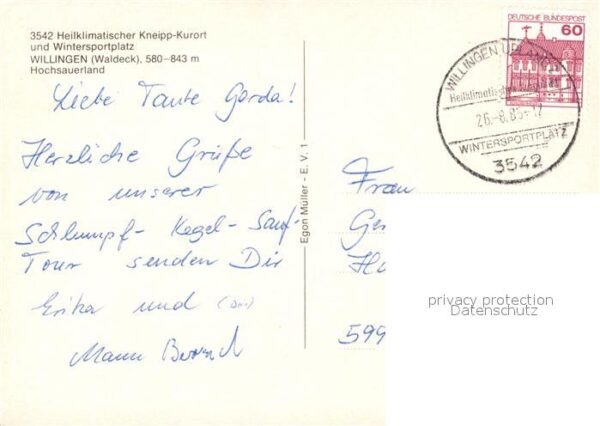 3542 Heilklimatischer Kneipp-Kurort
und Wintersportplatz
WILLINGEN (Waldeck), 580–843 m
Hochsauerland
Liebe Tante Gerda!
Herzliche Grüße
von unserer
Schlumpf- Kegel- Sauf-
Tour senden Dir
Erika und
Mann
Egon Müller - E. V. 1
Frau
Ger
Ha
599
DEUTSCHE BUNDESPOST
60
WILLINGEN UPLAND
Heilklimatischer
26.-8.85-12
WINTERSPORTPLATZ
3542
privacy protection
Datenschutz